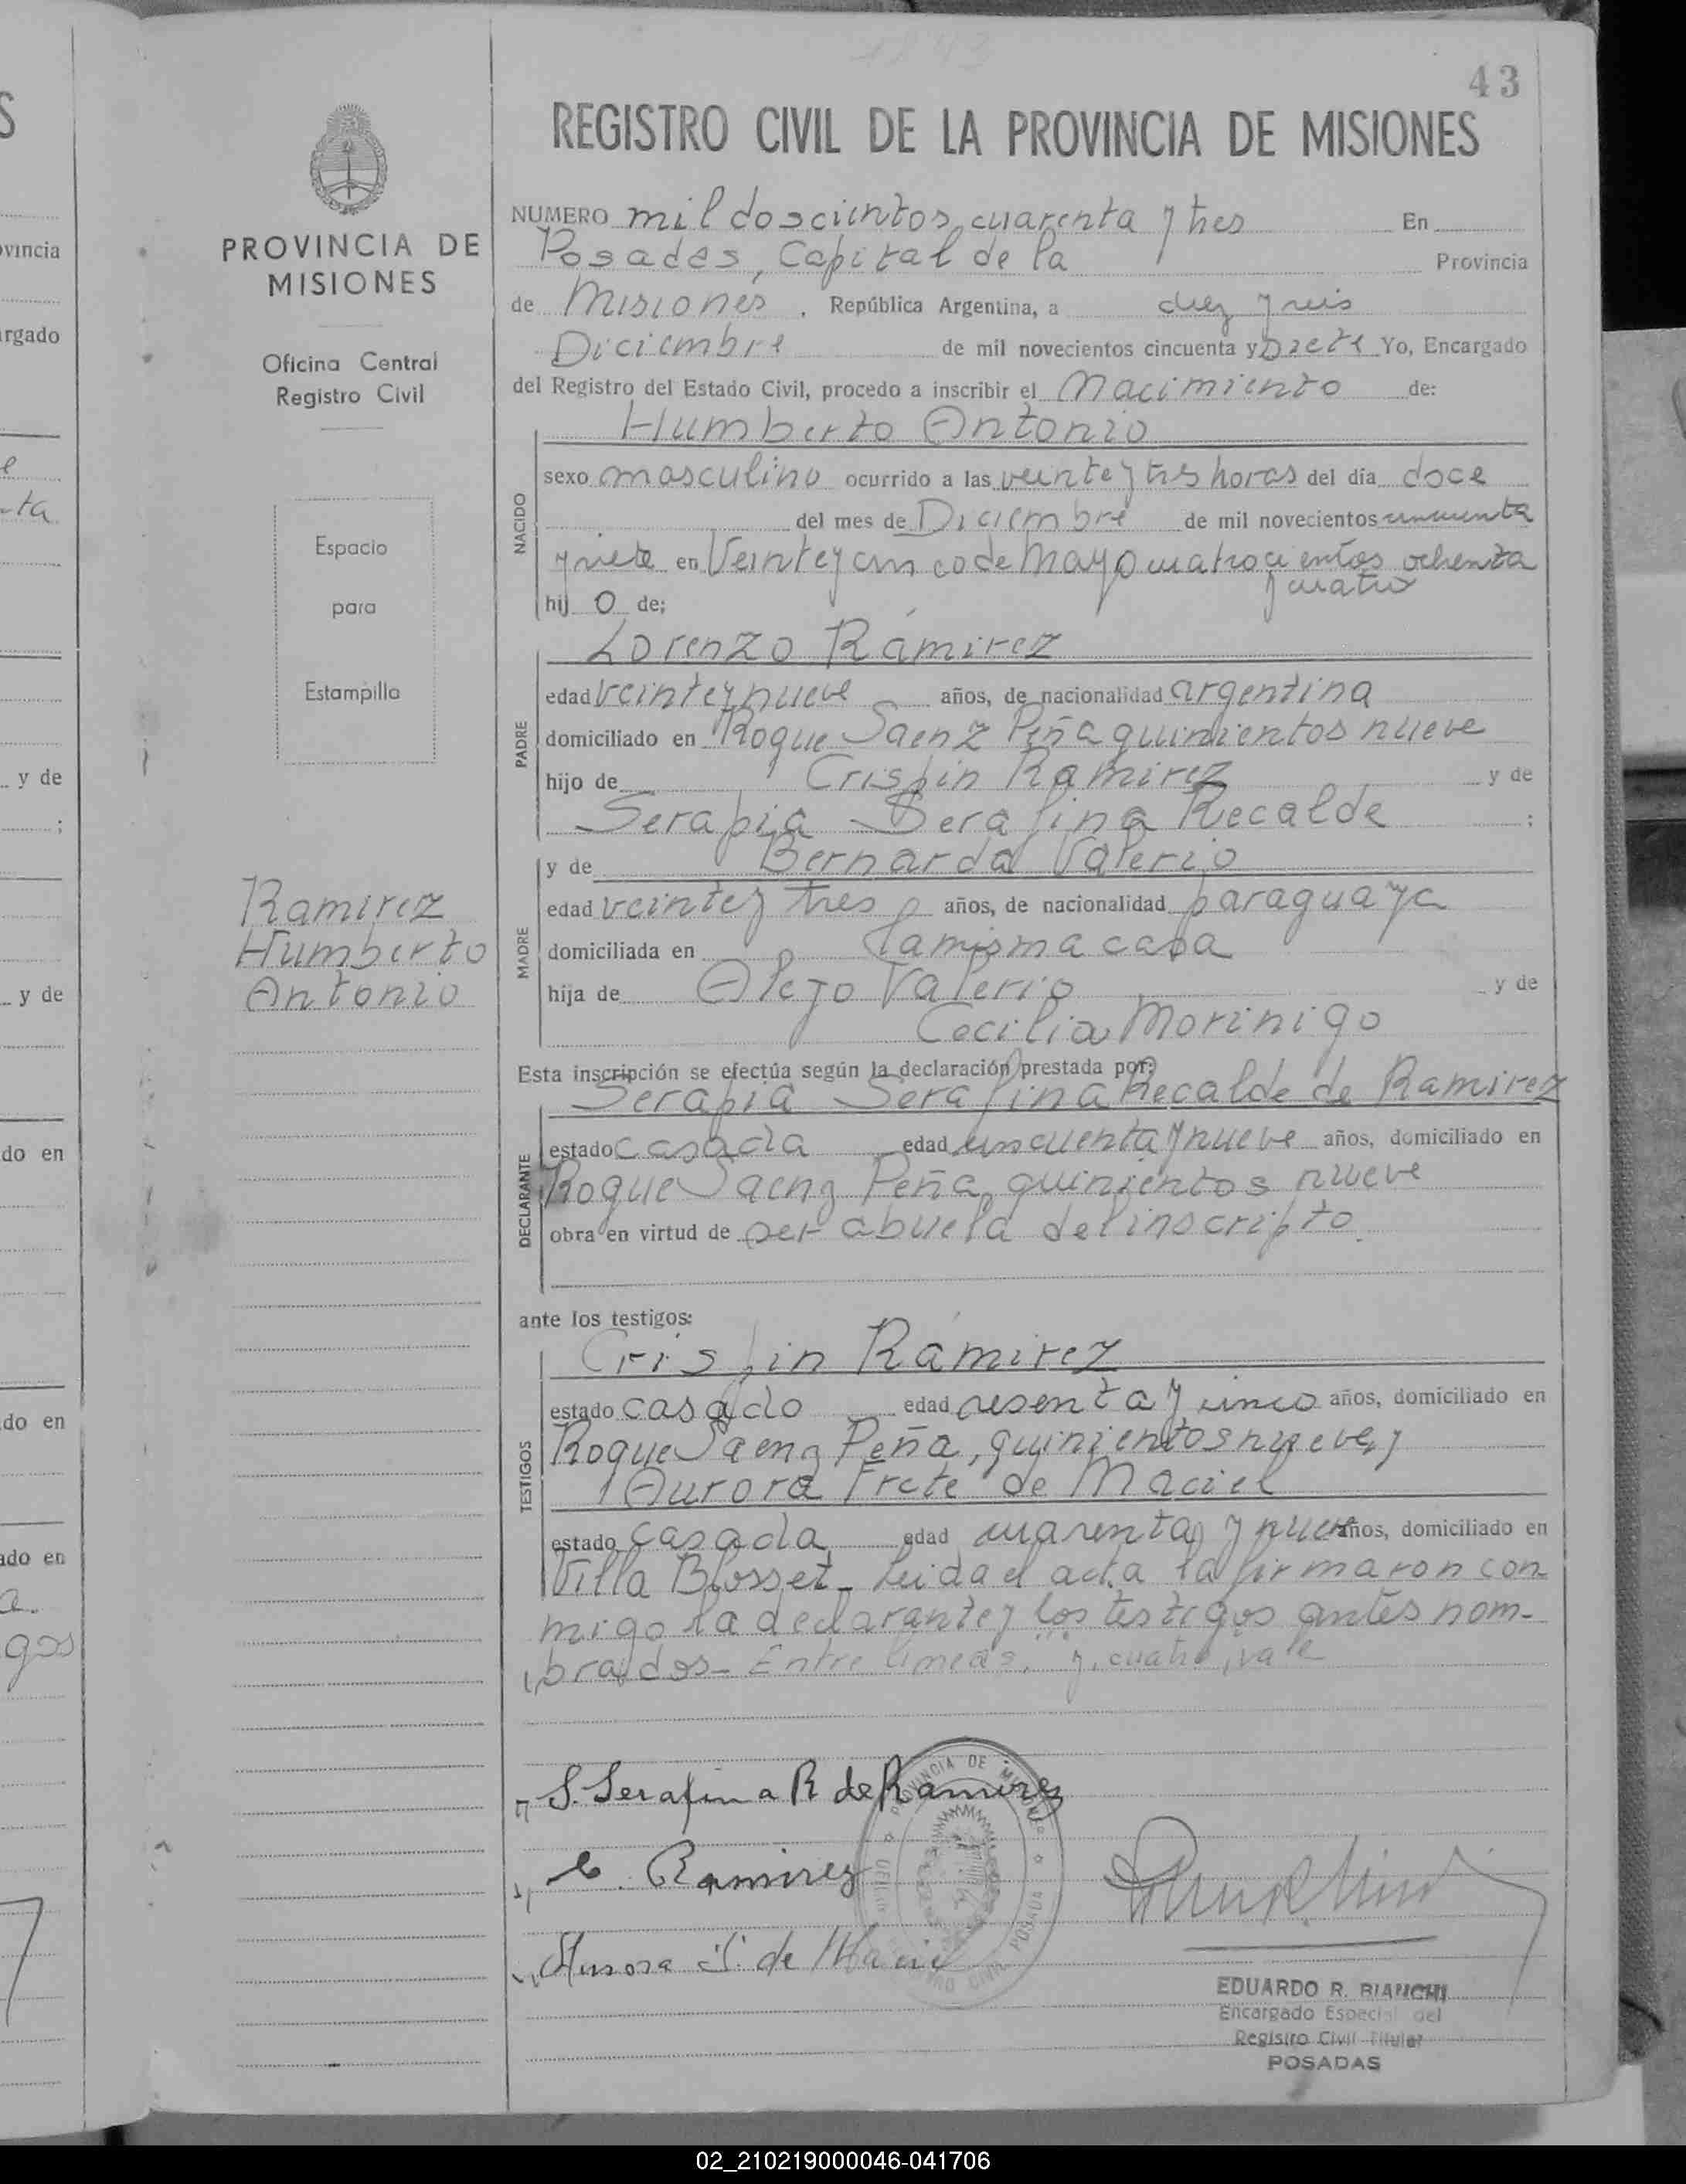 43
REGISTRO CIVIL DE LA PROVINCIA DE MISIONES
PROVINCIA DE
MISIONES
Oficina Central
Registro Civil
Espacio
para
Estampilla
Ramirez
Humberto
Antonio
NUMERO mil doscientos cuarenta y tres En
Posadas, Capital de la Provincia
de Misiones, República Argentina, a diez y seis
Diciembre de mil novecientos cincuenta y siete Yo, Encargado
del Registro del Estado Civil, procedo a inscribir el Nacimiento de:
Humberto Antonio
NACIDO
sexo masculino ocurrido a las veinte y tres horas del día doce
del mes de Diciembre de mil novecientos cincuenta
y siete en Veinte y cinco de Mayo cuatrocientos ochenta
y cuatro
hij o de;
Lorenzo Ramirez
PADRE
edad veinte y nueve años, de nacionalidad argentina
domiciliado en Roque Saenz Peña quinientos nueve
hijo de Crispin Ramirez y de
Serapia Serafina Recalde ;
y de Bernarda Valerio
MADRE
edad veinte y tres años, de nacionalidad paraguaya
domiciliada en la misma casa
hija de Alejo Valerio y de
Cecilia Morinigo
Esta inscripción se efectúa según la declaración prestada por:
Serapia Serafina Recalde de Ramirez
DECLARANTE
estado casada edad cincuenta y nueve años, domiciliado en
Roque Saenz Peña quinientos nueve
obra en virtud de ser abuela del inscripto
ante los testigos:
Crispin Ramirez
TESTIGOS
estado casado edad sesenta y cinco años, domiciliado en
Roque Saenz Peña, quinientos nueve, y
Aurora Frete de Maciel
estado casada edad cuarenta y nueve años, domiciliado en
Villa Blosset_ Leida el acta la firmaron con-
migo la declarante y los testigos antes nom-
brados_ Entre lineas, "y cuatro", vale
S. Serafina R de Ramirez
C. Ramirez
Aurora F. de Maciel
PROVINCIA DE MISIONES
POSADAS
EDUARDO R. BIANCHI
Encargado Especial del
Registro Civil Titular
POSADAS
vincia
rgado
y de
y de
do en
do en
ado en
gos
02_210219000046-041706